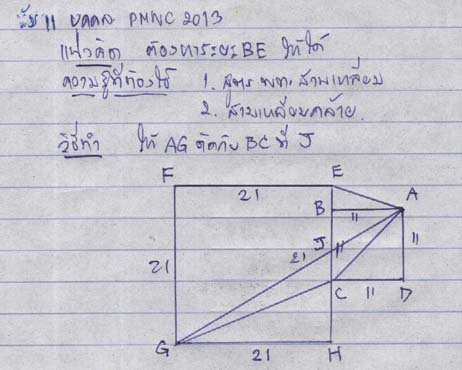 ข้อ 11 บุคคล PMWC 2013
แนวคิด ต้องหาระยะ BE ให้ได้
ความรู้ที่ต้องใช้ 1. สูตร พท. สามเหลี่ยม
2. สามเหลี่ยมคล้าย.
วิธีทำ ให้ AG ตัดกับ BC ที่ J
F E
21 A
B 11
J 11
21 21 11
C 11 D
G 21 H